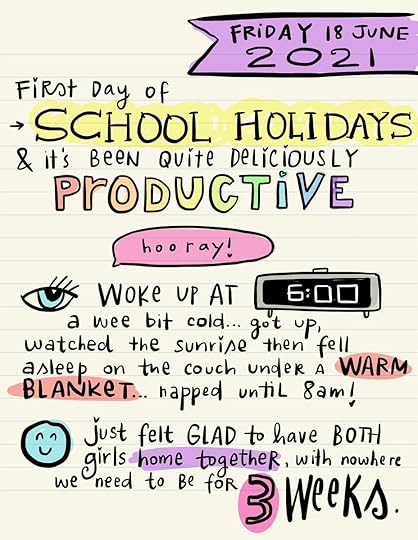 FRiDAY 18 JUNE
2021
FiRst Day of
→ SCHOOL HOLIDAYS
& it's BEEN QUitE DEliCiOUSLY
PRODUCTIVE
hooray!
WOKE UP AT 6:00
a wee bit cold... got up,
watched the sunrise then fell
asleep on the couch under A WARM
BLANKET... napped until 8am!
just felt GLAD to have BOTH
girls home together, with nowhere
we need to BE for 3 WEEKS.